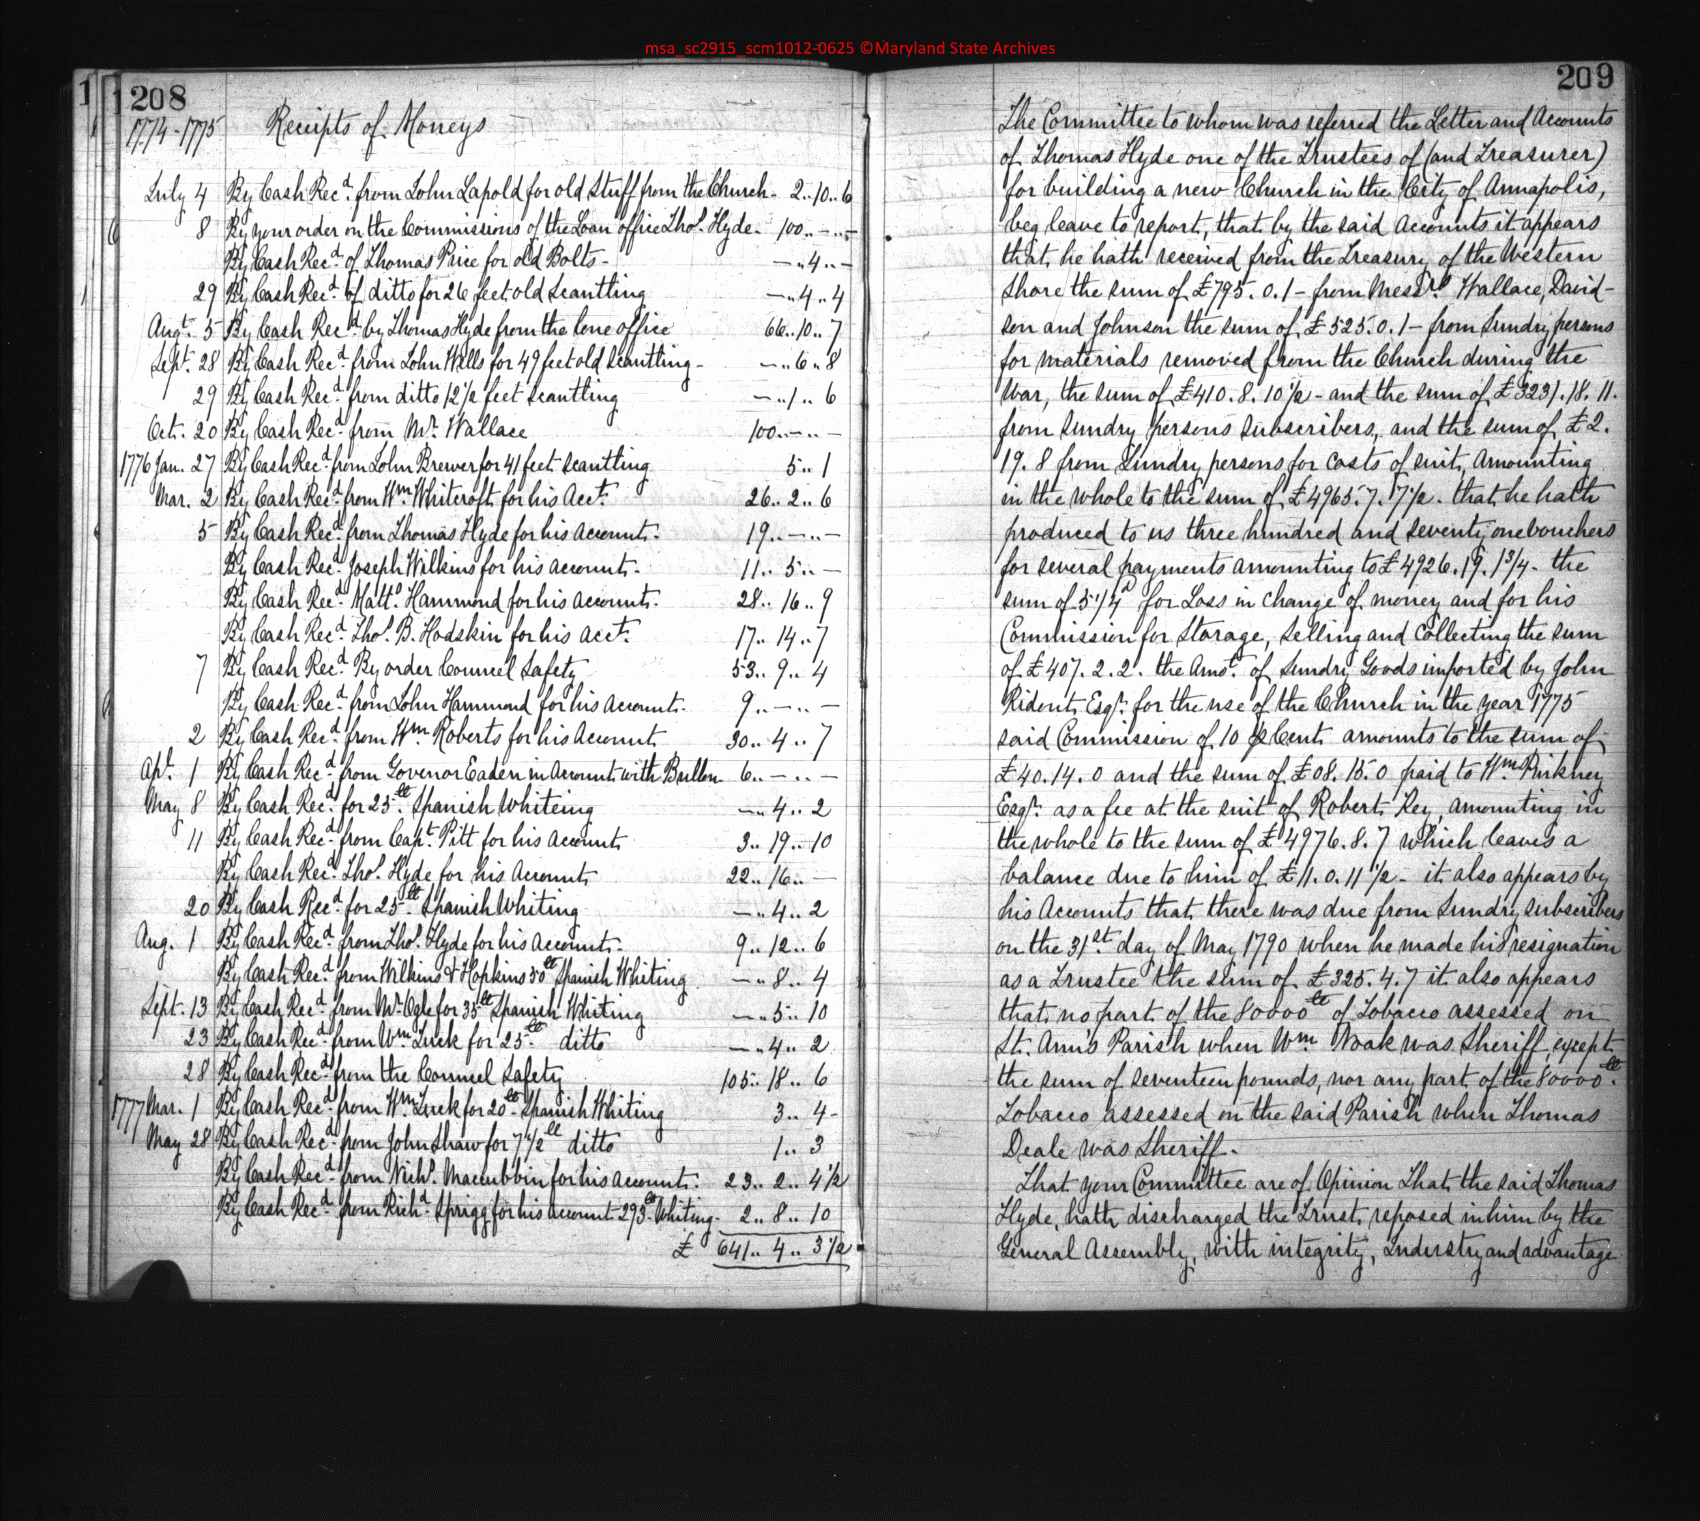 msa_sc2915_scm1012-0625 ©Maryland State Archives
208
1774-1775 Receipts of Moneys
July 4 By Cash Recd. from John Lapold for old Stuff from the Church - 2..10..6
8 By your order on the Commissions of the Loan office Thos. Hyde - 100..-..-
By Cash Recd. of Thomas Price for old Bolts - -..4..-
29 By Cash Recd. of ditto for 26 feet old Scantling -..4..4
Augt. 5 By Cash Recd. by Thomas Hyde from the lone office 66..10..7
Sept. 28 By Cash Recd. from John Wills for 49 feet old Scantling - -..6..8
29 By Cash Recd. from ditto 12 1/2 feet Scantling -..1..6
Oct. 20 By Cash Recd. from Mr. Wallace 100..-..-
1776 Jan. 27 By Cash Recd. from John Brewer for 41 feet Scantling 5..1
Mar. 2 By Cash Recd. from Wm. Whitcroft for his Acct. 26..2..6
5 By Cash Recd. from Thomas Hyde for his Account. 19..-..-
By Cash Recd. Joseph Wilkins for his account. 11..5..-
By Cash Recd. Matts. Hammond for his Account. 28..16..9
By Cash Recd. Thos. B. Hodskin for his acct. 17..14..7
7 By Cash Recd. By order Counsel Safety 53..9..4
By Cash Recd. from John Hammond for his Account. 9..-..-
2 By Cash Recd. from Wm. Roberts for his Account 30..4..7
Apl. 1 By Cash Recd. from Govenor Eaden in Account with Bullen 6..-..-
May 8 By Cash Recd. for 25 lb. Spanish Whiteing -..4..2
11 By Cash Recd. from Capt. Pitt for his Account 3..19..10
By Cash Recd. Thos. Hyde for his Account 22..16..-
20 By Cash Recd. for 25 lb. Spanish Whiting -..4..2
Aug. 1 By Cash Recd. from Thos. Hyde for his Account. 9..12..6
By Cash Recd. from Wilkins & Hopkins 50 lb Spanish Whiting -..8..4
Sept. 13 By Cash Recd. from Mr. Ogle for 35 lb Spanish Whiting -..5..10
23 By Cash Recd. from Wm. Tuck for 25 lb ditto -..4..2
28 By Cash Recd. from the Counsel Safety 105..18..6
1777 Mar. 1 By Cash Recd. from Wm. Tuck for 20 lb Spanish Whiting 3..4-
May 28 By Cash Recd. from John Shaw for 7 1/2 lb ditto 1..3
By Cash Recd. from Nichs. Maccubbin for his account. 23..2..4 1/2
By Cash Recd. from Richd. Sprigg for his account 293 lb Whiting - 2..8..10
£ 641..4..3 1/2
209
The Committee to whom was referred the Letter and Accounts
of Thomas Hyde one of the Trustees of (and Treasurer)
for building a new Church in the City of Annapolis,
beg leave to report, that by the said Accounts it appears
that he hath received from the Treasury of the Western
Shore the sum of £795.0.1 - from Messrs. Wallace, David-
son and Johnson the sum of £525.0.1 - from Sundry persons
for materials removed from the Church during the
War, the sum of £410.8.10 1/2 - and the sum of £3231.18.11.
from Sundry persons subscribers, and the sum of £2.
19.8 from Sundry persons for costs of suit, Amounting
in the whole to the sum of £4965.7.7 1/2. that he hath
produced to us three hundred and seventy one vouchers
for several payments amounting to £4926.19.1 3/4 - the
sum of 5 1/4d for Loss in change of money and for his
Commission for Storage, Selling and Collecting the sum
of £407.2.2. the Amot. of Sundry Goods imported by John
Ridout Esqr. for the use of the Church in the year 1775
said Commission of 10 p Cent amounts to the sum of
£40.14.0 and the sum of £08.15.0 paid to Wm. Pinkney
Esqr. as a fee at the suit of Robert Key, amounting in
the whole to the sum of £4976.8.7 which leaves a
balance due to him of £11.0.11 1/2 - it also appears by
his Accounts that there was due from Sundry subscribers
on the 31st day of May 1790 when he made his resignation
as a Trustee the sum of £325.4.7 it also appears
that no part of the 80000 lb of Tobacco assessed on
St. Ann's Parish when Wm Noak was Sheriff, except
the sum of seventeen pounds, nor any part of the 80000 lb.
Tobacco assessed on the said Parish when Thomas
Deale was Sheriff.
That your Committee are of Opinion That the said Thomas
Hyde, hath discharged the Trust reposed in him by the
General Assembly, with integrity, industry and advantage